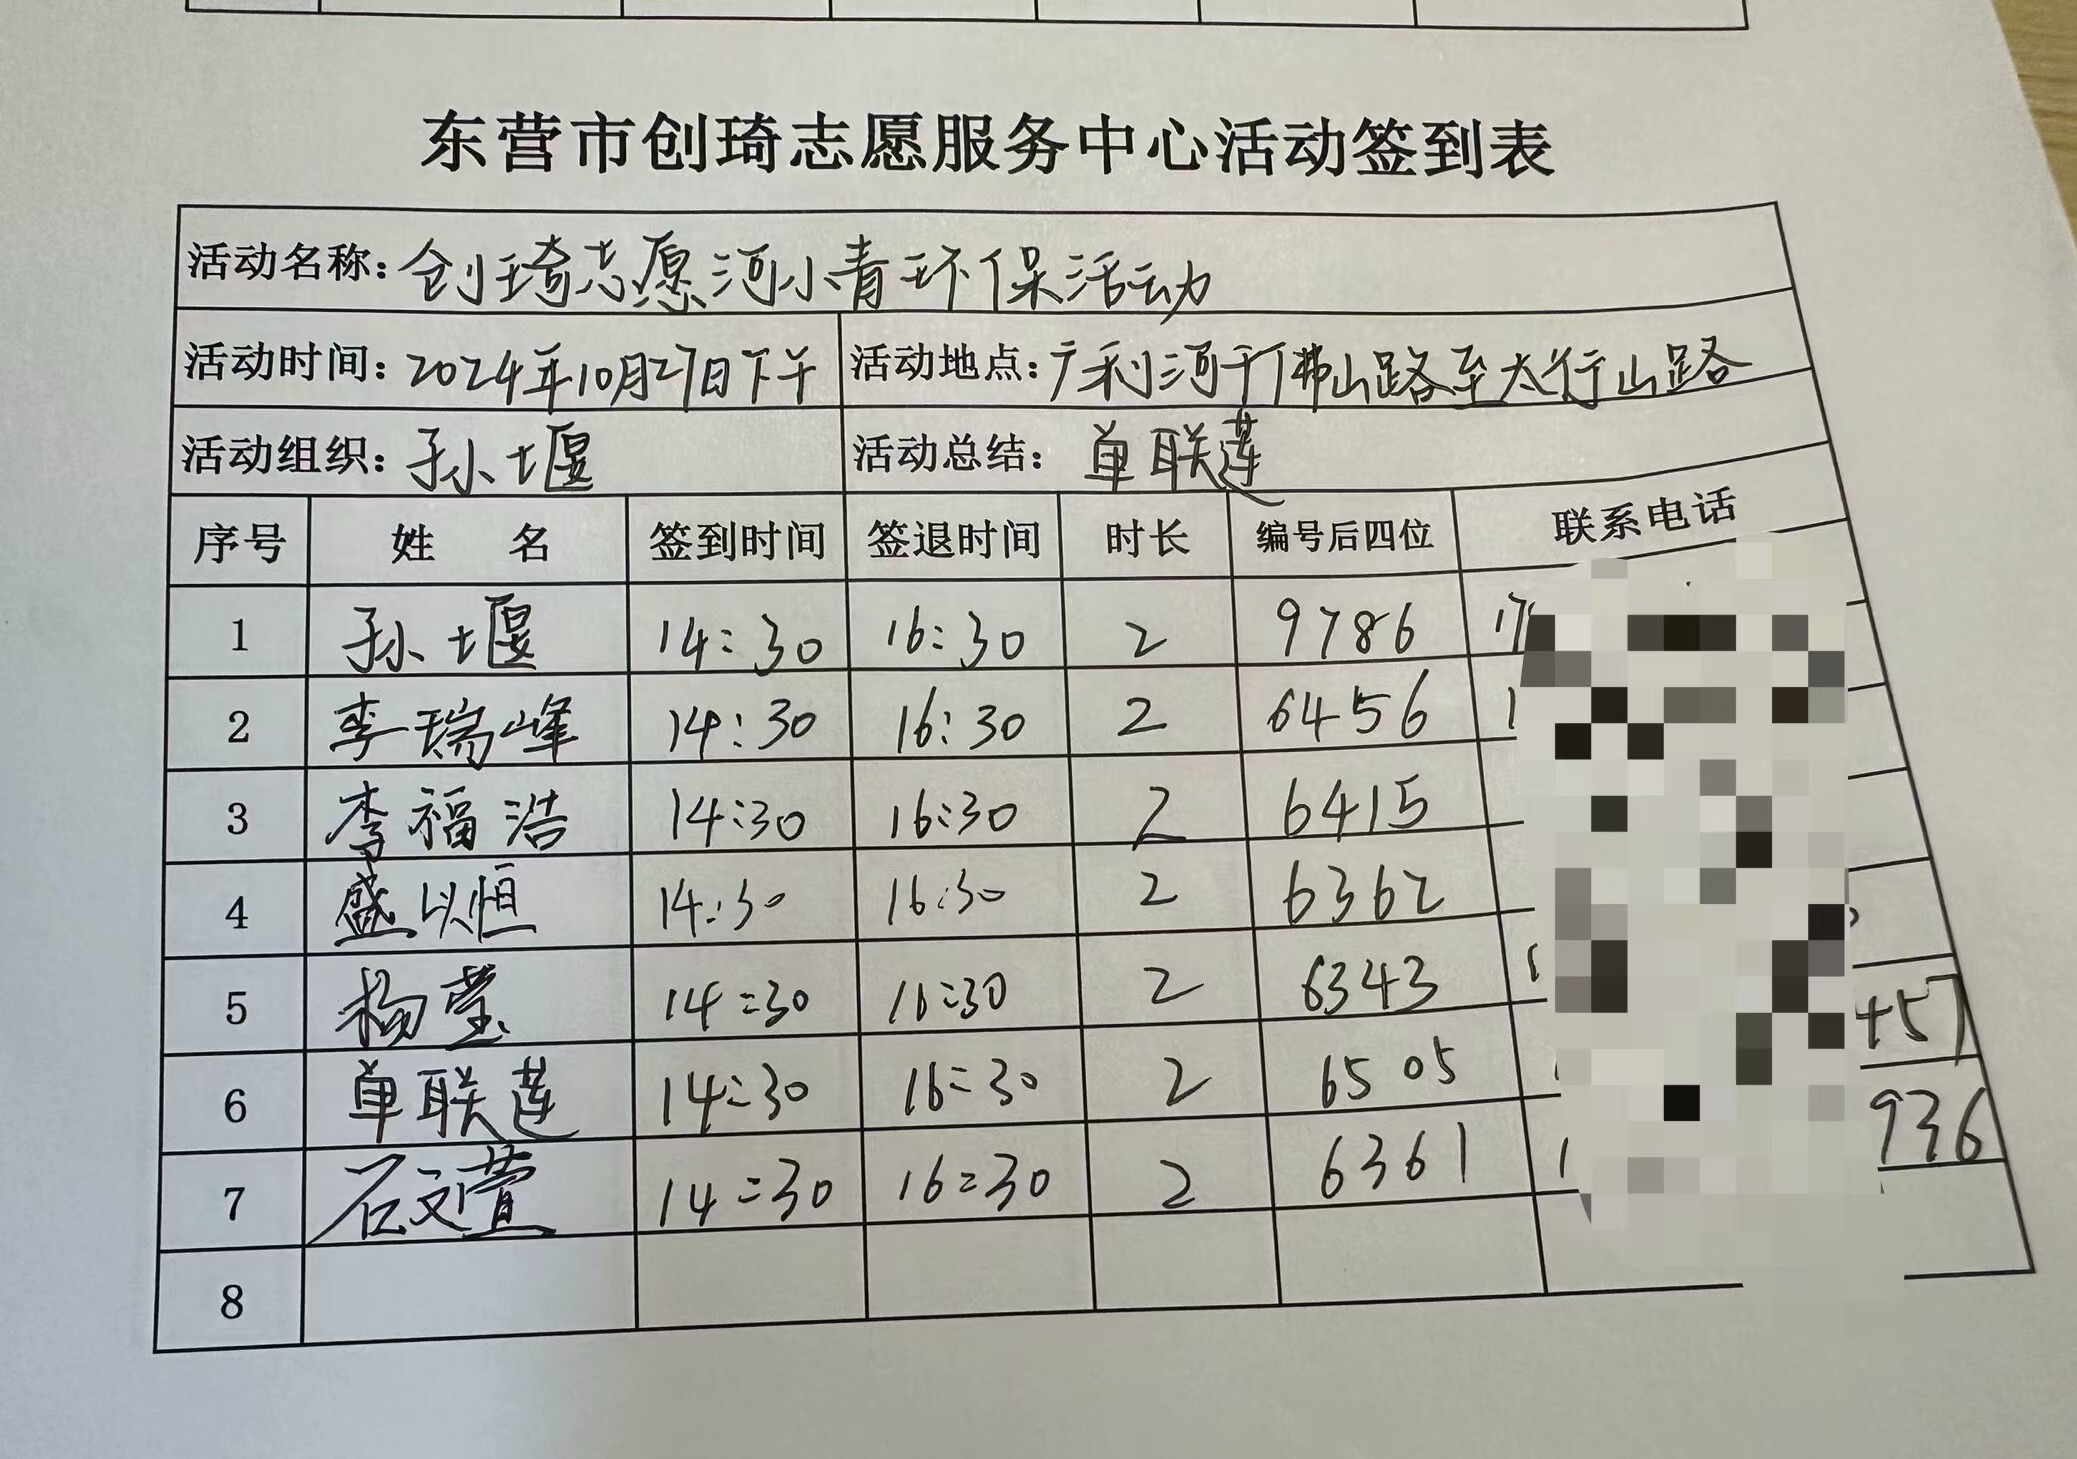 东营市创琦志愿服务中心活动签到表
活动名称：创琦志愿河小青环保活动
活动时间：2024年10月27日下午 活动地点：广利河千佛山路至太行山路
活动组织：孙堰 活动总结：单联莲
序号 姓 名 签到时间 签退时间 时长 编号后四位 联系电话
1 孙堰 14:30 16:30 2 9786 17
2 李瑞峰 14:30 16:30 2 6456 1
3 李福浩 14:30 16:30 2 6415
4 盛以恒 14:30 16:30 2 6362
5 杨莹 14:30 16:30 2 6343 1 457
6 单联莲 14:30 16:30 2 6505 1 936
7 石文萱 14:30 16:30 2 6361 1
8